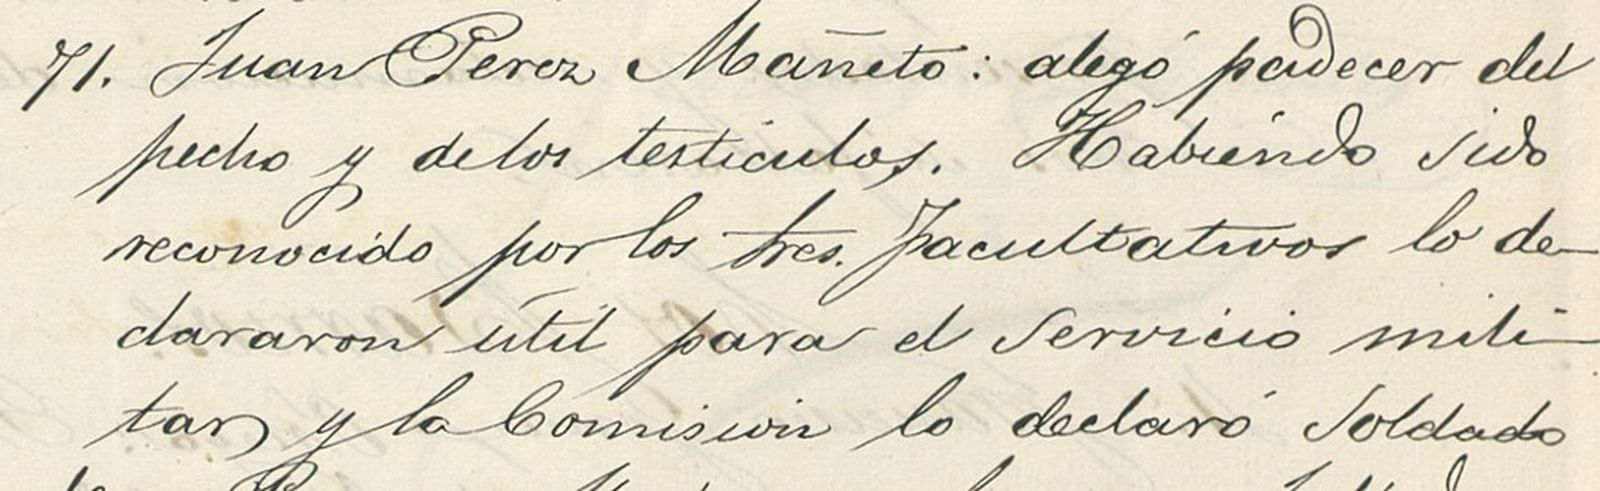 71. Juan Perez Mañeto: alegó padecer del
pecho y de los testiculos. Habiendo sido
reconocido por los tres facultativos lo de-
clararon útil para el servicio mili-
tar y la Comision lo declaró Soldado